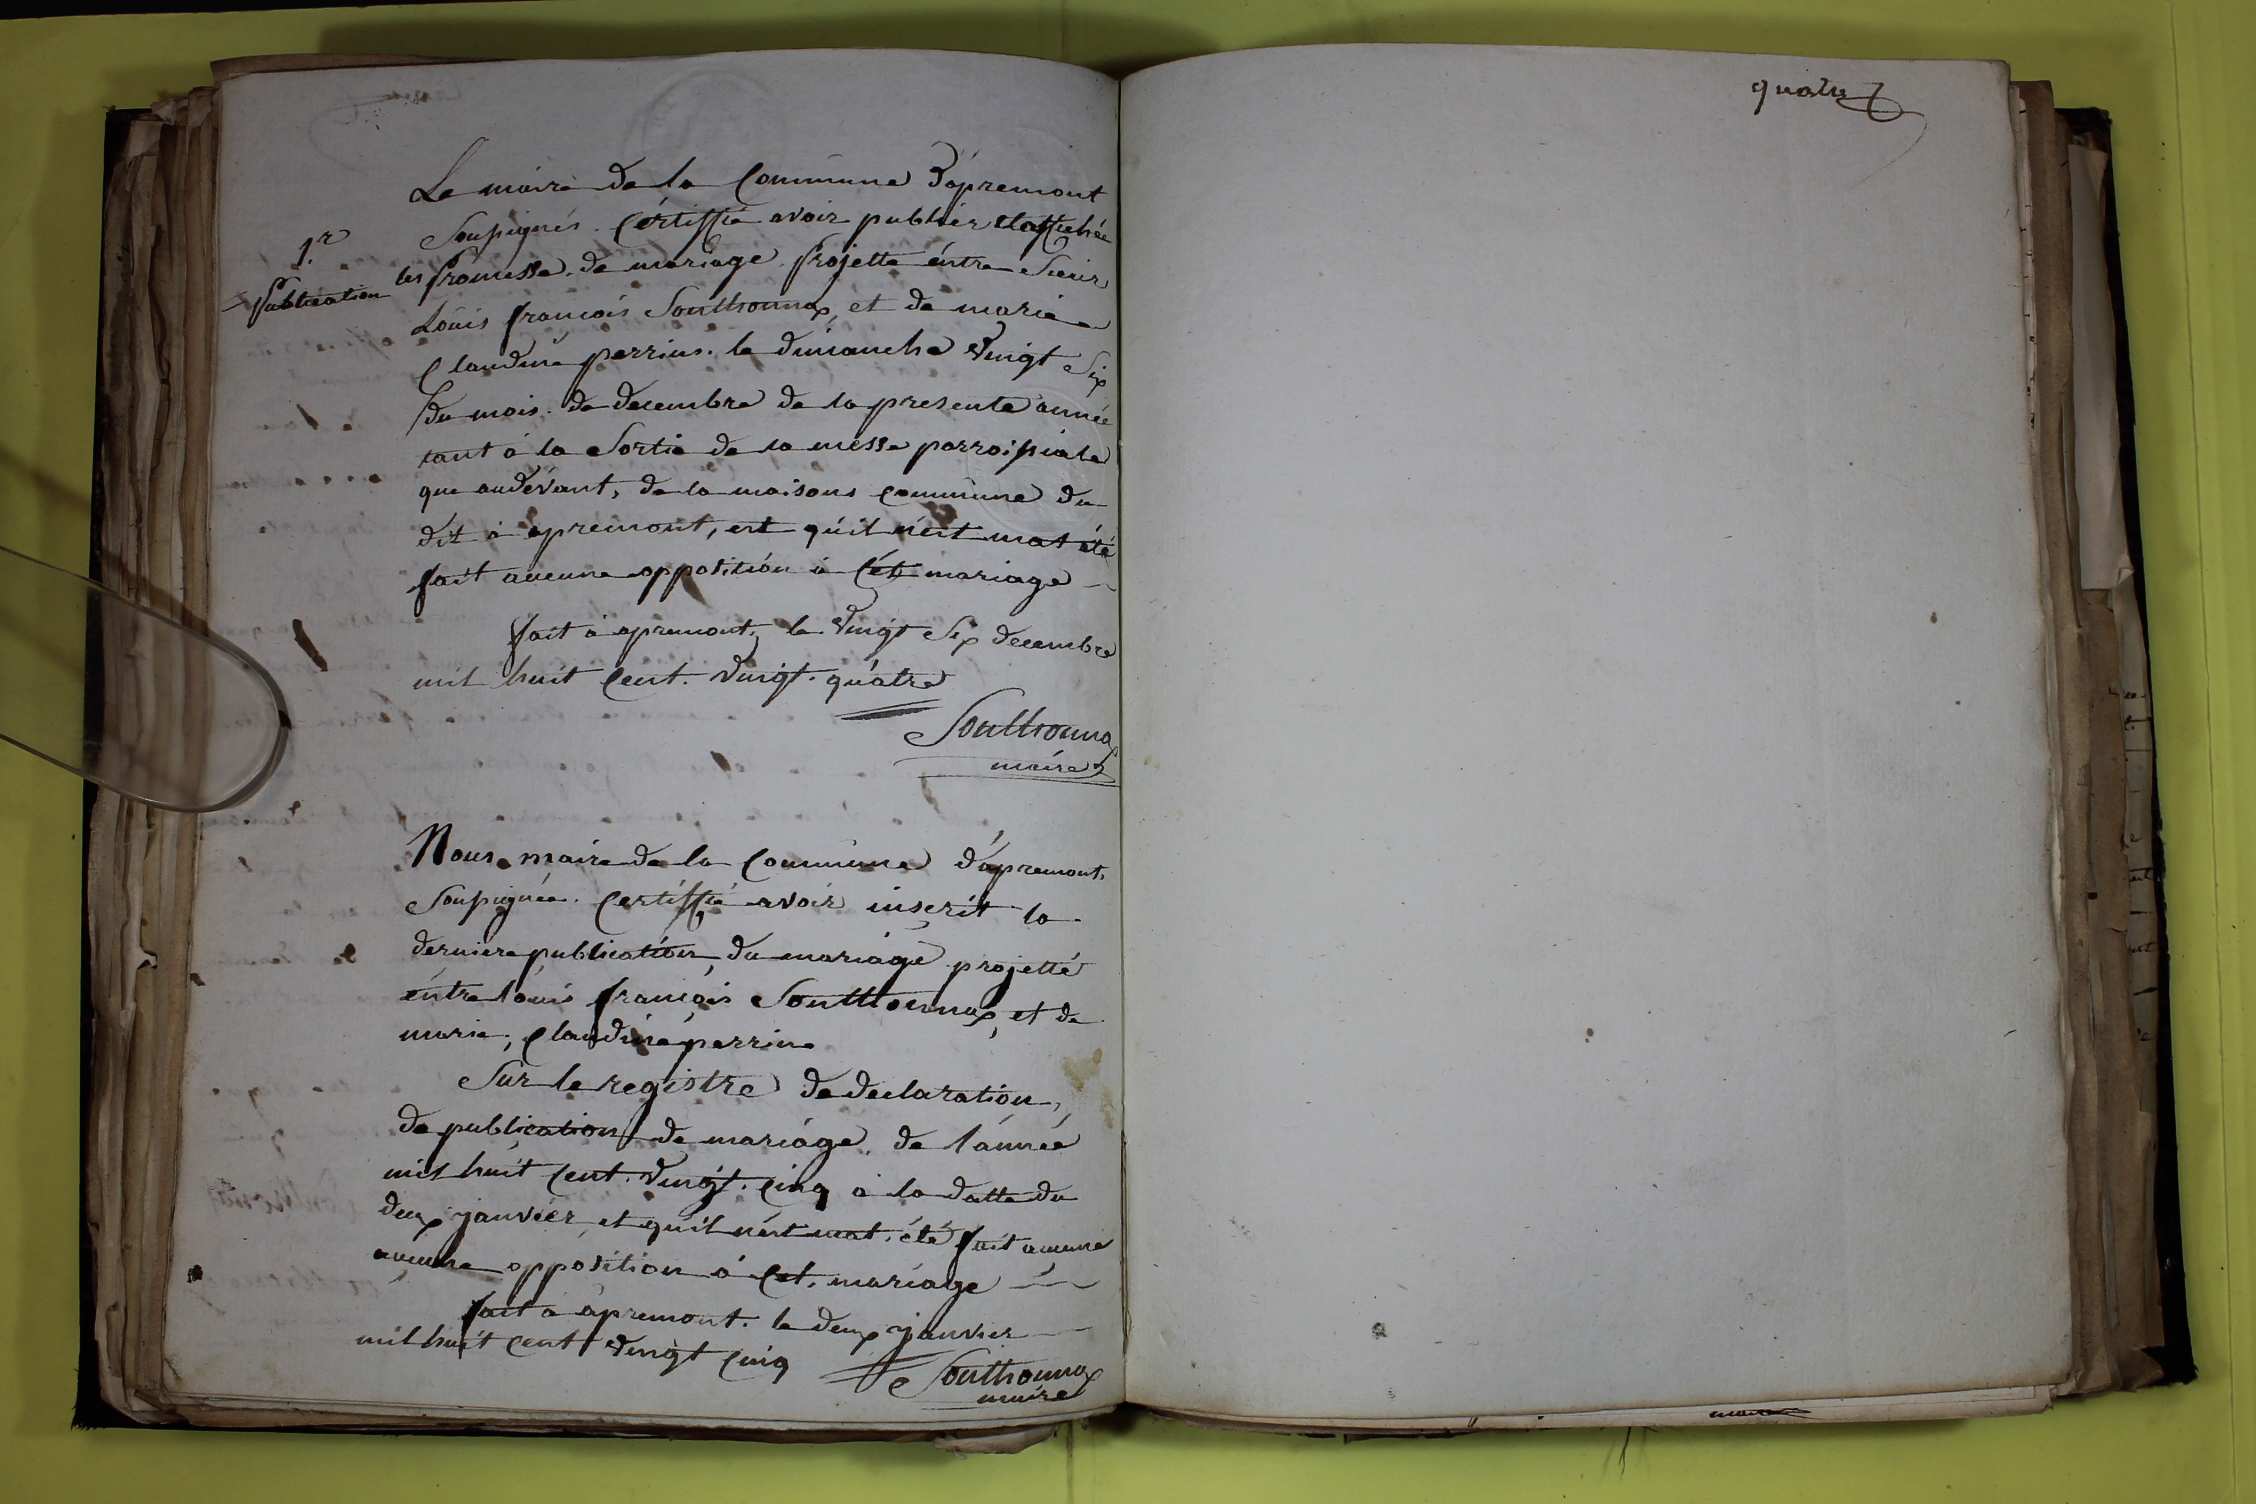 Le maire de la Commune d'apremont
Soussignés. Certiffie avoir publier et affichée
1.r
Publication
les promesse de mariage projette éntre Sieur
Louis francois Sonthonnax, et de marie
Claudine perrin. le dimanche vingt Six
du mois. de decembre de la presente année
tant à la Sortie de la messe parroissiale
que audevant, de la maisons commune du
dit à apremont, est qu'il n'eit mat été
fait aucune opposition à Cét mariage
fait à apremont, le vingt Six decembre
mil huit Cent. vingt. quatre
Sonthonnax
maire
Nous maire de la Commune d'apremont.
Soussignée. Certiffié avoir inscrit la
derniere publication, du mariage projetté
éntre louis françois Sonthonnax, et de
marie, Claudine perrin
Sur le registre de declaration,
de publication de mariage, de l'année
mil huit Cent. vingt. Cinq à la datte du
deux janvier, et qu'il n'éit mat. été fait aucune
aucune opposition á Cet. mariage
fait à apremont. le deux janvier
mil huit Cent vingt Cinq
Sonthonnax
maire
quatre